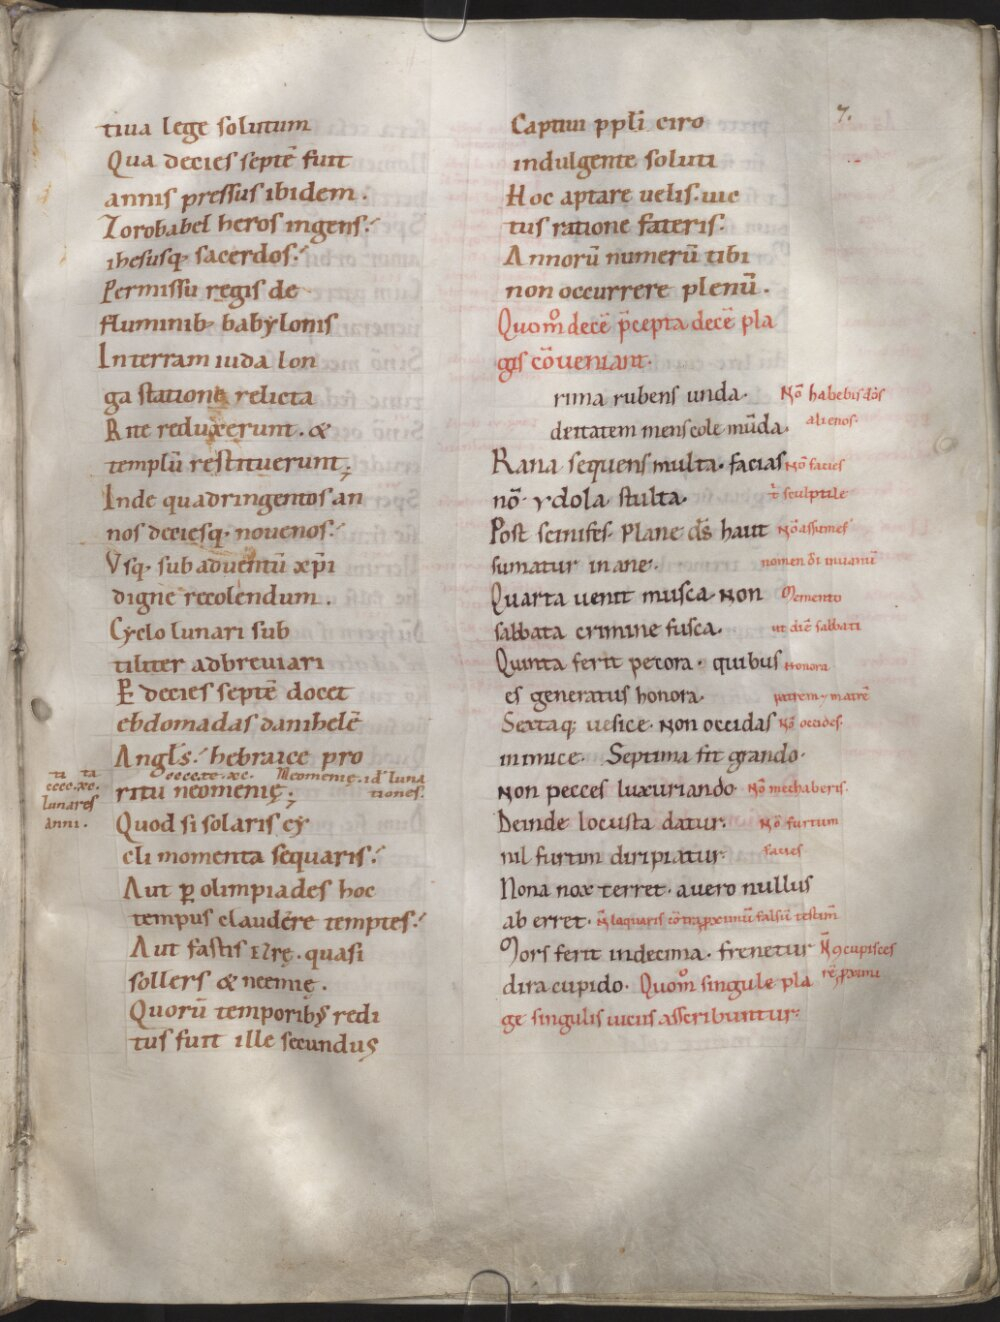 7.
tiua lege solutum
Qua decies septē fuit
annis pressus ibidem.
Zorobabel heros ingens.
ihesusq; sacerdos.
Permissu regis de
fluminib; babylonis
Interram iuda lon
ga statione relicta
Rite reduxerunt. &
templū restituerunt;
Inde quadringentos an
nos deciesq; nouenos.
Vsq; sub aduentū xp̄i
digne recolendum.
Cyclo lunari sub
tiliter adbreviari
E decies septē docet
ebdomadas danihelē
Angl's. hebraice pro
cccc.xc. Neomenię. id luna
tiones.
ritu neomenię;
cccc.xc.
lunares
anni.
Quod si solaris cy
cli momenta sequaris.
Aut ꝑ olimpiades hoc
tempus claudere temptes.
Aut fastis ezrę. quasi
sollers & neemię.
Quorū temporibꝰ redi
tus fuit ille secundus
Captiui ppl'i ciro
indulgente soluti
Hoc aptare uelis. uic
tus ratione fateris.
Annorū numerū tibi
non occurrere plenū.
Quom̊ decē p̄cepta decē pla
gis cōueniant.
rima rubens unda.
Nō habebis dōs
alienos.
deitatem mens cole mūda.
Rana sequens multa. facias
Nō facies
nō. ydola stulta.
t̄ sculptile
Post scinifes. Plane d̄s haut
Nō assumes
sumatur inane.
nomen dī inuanū
Quarta uenit musca. Non
Memento
sabbata crimine fusca.
ut diē sabbati
Quinta ferit pecora. quibus
Honora
es generatus honora.
patrem & matrē
Sextaq; uesice. Non occidas
Nō occides.
inimice. Septima fit grando.
Non pecces luxuriando.
Nō mechaberis.
Deinde locusta datur.
Nō furtum
nil furtim diripiatur.
facies
Nona nox terret. a uero nullus
ab erret. N̄ loquaris cōtra ꝓximū falsū testim̄
Mors ferit indecima. frenetur
N̄ ꝯcupisces
dira cupido. Quom̊ singule pla
rē ꝓximi
ge singulis uiciis asscribuntur.